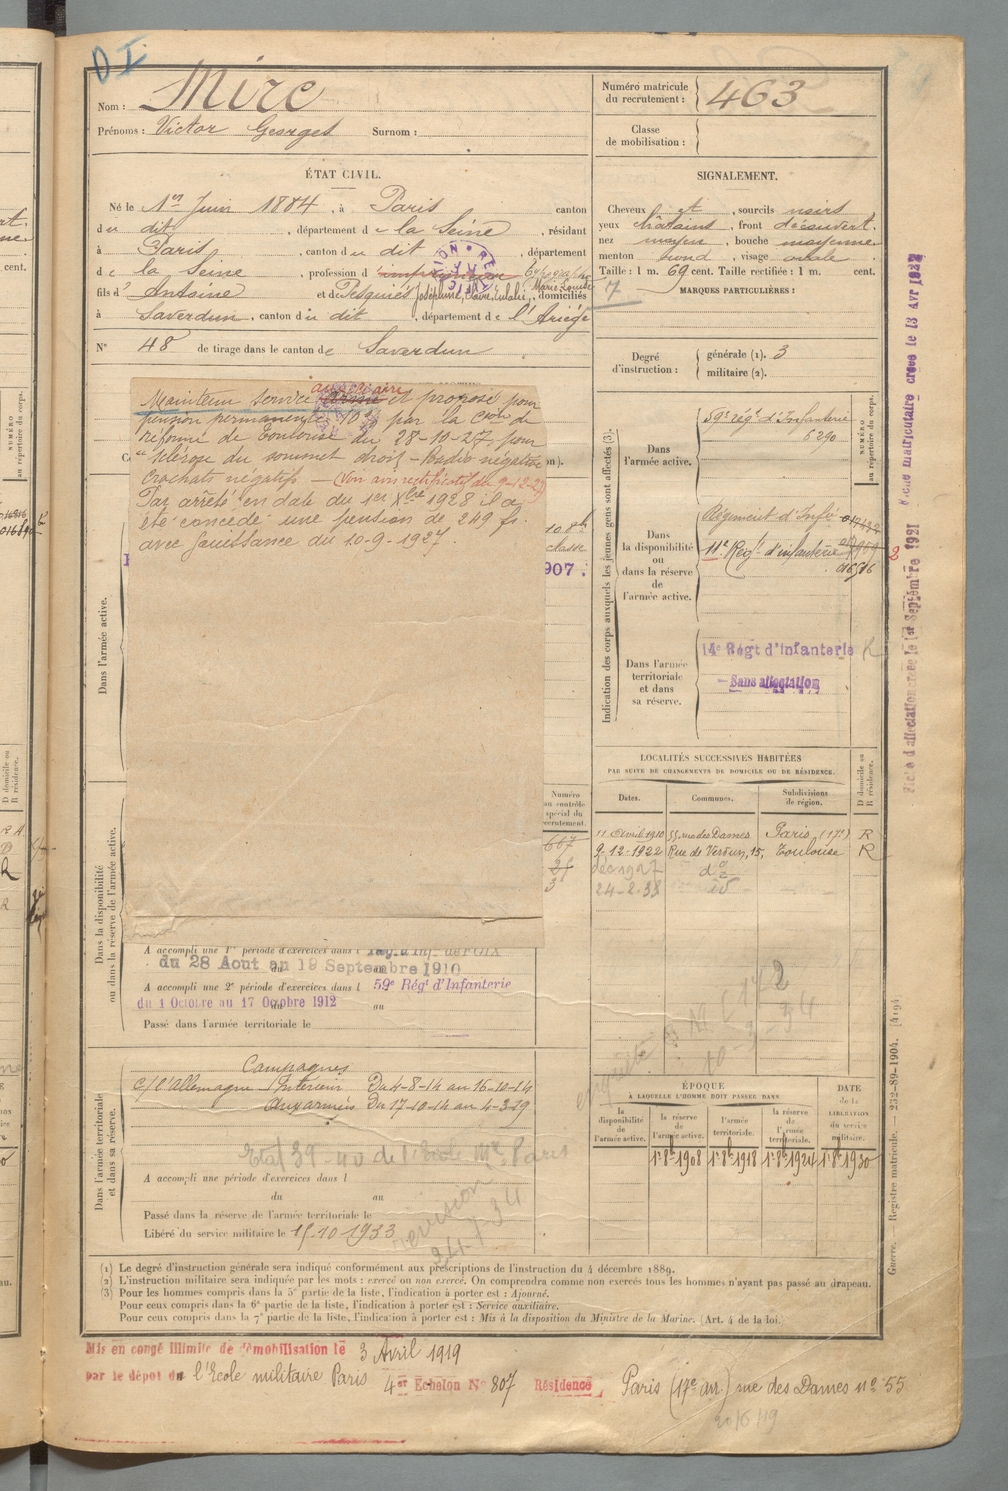 D I
Nom : Mirc
Prénoms : Victor Georges Surnom :
Numéro matricule du recrutement : 463
Classe de mobilisation :
ÉTAT CIVIL.
Né le 1er Juin 1884, à Paris canton
du dit, département de la Seine, résidant
à Paris, canton du dit, département
de la Seine, profession d imprimeur Typographe
fils d' Antoine et de Pesquiès Joséphine, Claire, Eulalie, Marie Louise, domiciliés
à Saverdun, canton du dit, département de l'Ariège
N° 48 de tirage dans le canton de Saverdun
SIGNALEMENT.
Cheveux et, sourcils noirs
yeux châtains, front découvert.
nez moyen, bouche moyenne
menton rond, visage ovale.
Taille : 1 m. 69 cent. Taille rectifiée : 1 m. cent.
7 MARQUES PARTICULIÈRES :
Degré d'instruction : générale (1). 3
militaire (2).
auxiliaire
Maintenu service armé et proposé pour
pension permanente 10% par la Cion de
réforme de Toulouse du 28-10-27 pour
"sclérose du sommet droit - Radio négative
Crachats négatifs — (Voir avis rectificatif du 9-12-27
Par arrêté en date du 1er Xbre 1928 il a
été concédé une pension de 249 fr.
avec jouissance du 10-9-1927.
classe
907.
Dans l'armée active.
Dans la disponibilité ou dans la réserve de l'armée active.
Numéro au contrôle spécial du recrutement.
667
3
A accompli une 1re période d'exercices dans l
du 28 Aout au 19 Septembre 1910
A accompli une 2e période d'exercices dans l 59e Régt d'Infanterie
du 1 Octobre au 17 Octobre 1912 au
Passé dans l'armée territoriale le
Dans l'armée territoriale et dans sa réserve.
Campagnes
c/ l'Allemagne Intérieur Du 4-8-14 au 16-10-14
Aux armées Du 17-10-14 au 4-3-19
Etat 39-40 de l'Ecole Mre Paris
A accompli une période d'exercices dans l
du au
Passé dans la réserve de l'armée territoriale le
Libéré du service militaire le 15-10-1933
revision
Indication des corps auxquels les jeunes gens sont affectés (3).
NUMÉRO au répertoire du corps.
Dans l'armée active.
59e Régt d'Infanterie
5290
Dans la disponibilité ou dans la réserve de l'armée active.
Régiment d'Infie
11e Régt d'infanterie
016516
2
Dans l'armée territoriale et dans sa réserve.
14e Régt d'infanterie
Sans affectation
LOCALITÉS SUCCESSIVES HABITÉES
PAR SUITE DE CHANGEMENTS DE DOMICILE OU DE RÉSIDENCE.
Dates. Communes. Subdivisions de région. D domicile ou R résidence.
11 Avril 1910 55, rue des Dames Paris (17e) R
9-12-1922 Rue de Verdun, 15, Toulouse R
do
24-2-38 id
ÉPOQUE
À LAQUELLE L'HOMME DOIT PASSER DANS
la disponibilité de l'armée active. la réserve de l'armée active. l'armée territoriale. la réserve de l'armée territoriale. DATE de la LIBÉRATION du service militaire.
1r 8bre 1908 1r 8bre 1918 1r 8bre 1924 1r 8bre 1930
(1) Le degré d'instruction générale sera indiqué conformément aux prescriptions de l'instruction du 4 décembre 1889.
(2) L'instruction militaire sera indiquée par les mots : exercé ou non exercé. On comprendra comme non exercés tous les hommes n'ayant pas passé au drapeau.
(3) Pour les hommes compris dans la 5e partie de la liste, l'indication à porter est : Ajourné.
Pour ceux compris dans la 6e partie de la liste, l'indication à porter est : Service auxiliaire.
Pour ceux compris dans la 7e partie de la liste, l'indication à porter est : Mis à la disposition du Ministre de la Marine. (Art. 4 de la loi.)
Mis en congé illimité de démobilisation le 3 Avril 1919
par le dépôt de l'Ecole militaire Paris 4er Echelon N° 807 Résidence Paris (17e arr.) rue des Dames n° 55
Guerre. — Registre matricule. — 232-89-1904. [4194]
Fiche d'affectation créée le 1er Septembre 1921